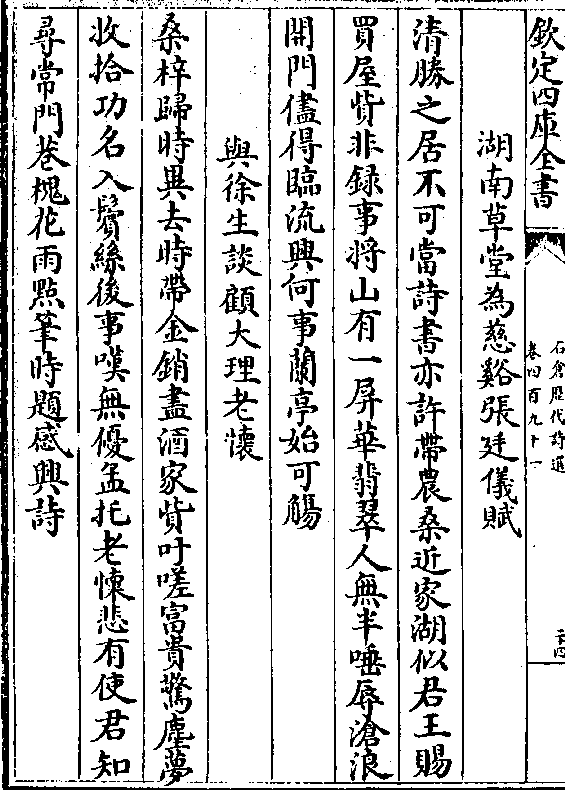 欽定四庫全書
石倉歷代詩選
卷四百九十一
二十四
湖南草堂為慈谿張廷儀賦
清勝之居不可當詩書亦許帶農桑近家湖似君王賜
買屋貲非録事將山有一屏華翡翠人無半唾辱滄浪
開門儘得臨流興何事蘭亭始可觴
與徐生談顧大理老懷
桑梓歸時異去時帶金銷盡酒家貲吁嗟富貴驚塵夢
收拾功名入鬢絲後事嘆無優孟托老懷悲有使君知
尋常門巷槐花雨點筆時題感興詩